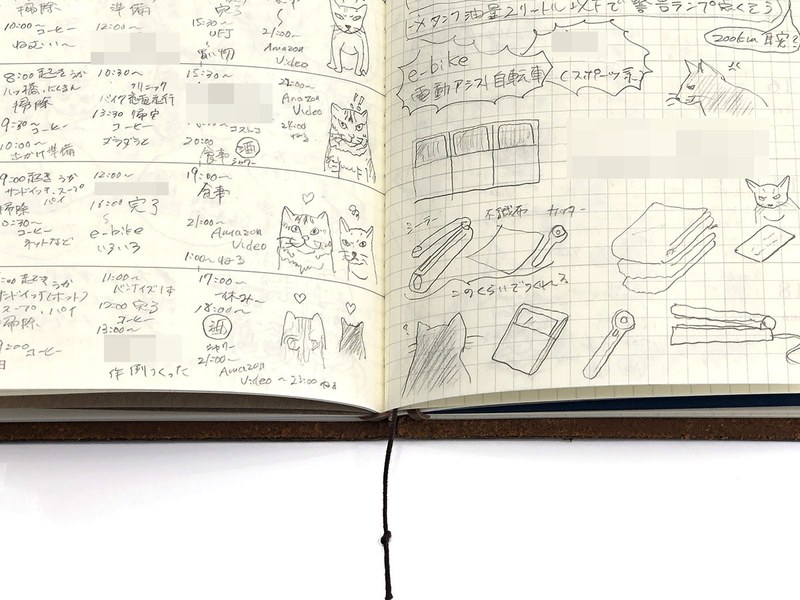 掃除
10:00〜
コーヒー
ねむい〜
準備
12:00〜
完了
15:30〜
UFJ
買い物
21:00〜
Amazon
Video
8:00 起き うが
掃除
9:30〜
コーヒー
10:00〜
準備
10:30〜
クリニック
13:30 帰宅
コーヒー
ダラダラと
15:30〜
コストコ
20:00
食事 酒
シャワー
22:00〜
Amazon
Video
24:00
ねる
9:00 起き うが
サンドイッチ、スープ
パイ
掃除
10:30〜
コーヒー
ネットなど
12:00〜
16:00 完了
〜
e-bike
いろいろ
19:00〜
食事
21:00〜
Amazon
Video
1:00〜 ねる
起き うが
サンドイッチ(ホット)
スープ、パイ
掃除
9:00 コーヒー
11:00〜
12:00 完了
コーヒー
13:00〜
作例つくった
17:00〜
一休み〜
18:00〜
酒
シャワー
21:00〜
Amazon
Video 〜23:00 ねる
→メタンプ油量2リートル以下で警告ランプ点くそう
200km
e-bike
電動アシスト自転車
(スポーツ系)
シーラー
不織布
カッター
このくらいでつくれる